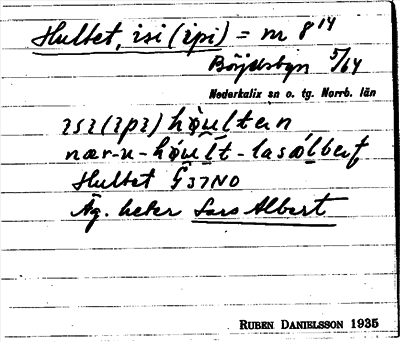 Hultet, isi (ipi) = m 8¹⁴
Böjelsbyn 5/64
Nederkalix sn o. tg. Norrb. län
ısı (ıpı) hòu̯ltèn
nær-u-hóu̯lt-lasálbært
Hultet G37NO
Äg. heter Lars Albert
RUBEN DANIELSSON 1935